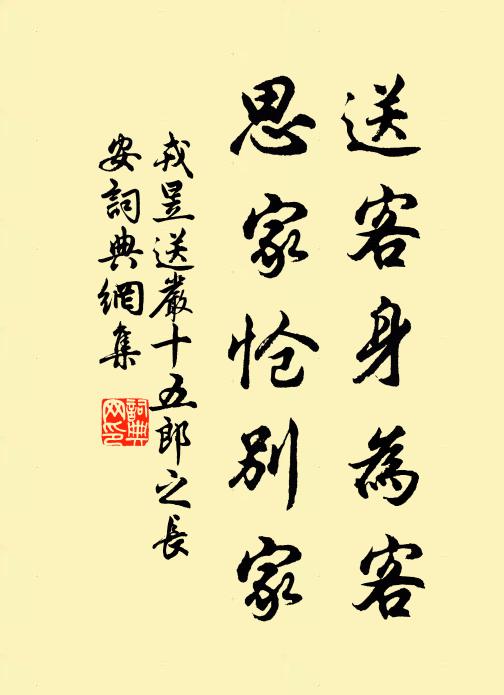 送客身為客
思家怆別家
戎昱送嚴十五郎之長
安詞典網集
詞典
网印